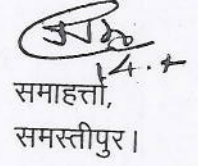 14.7
समाहर्त्ता,
समस्तीपुर।